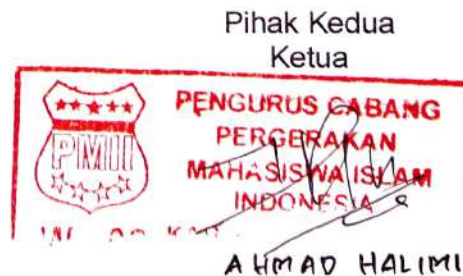 Pihak Kedua
Ketua
PMII
PENGURUS CABANG
PERGERAKAN
MAHASISWA ISLAM
INDONESIA
AHMAD HALIMI